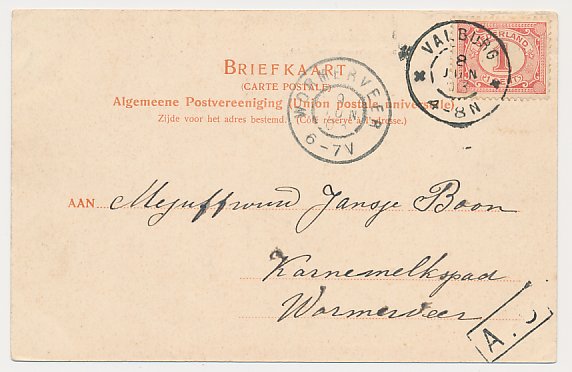 VALBURG
8
JUN
03
4-8N
NEDERLAND
1
BRIEFKAART
(CARTE POSTALE)
Algemeene Postvereeniging (Union postale universelle)
Zijde voor het adres bestemd. (Côté réservé à l'adresse.)
WORMERVEER
9
JUN
6-7V
AAN Mejuffrouw Jansje Boon
Karnemelkspad
Wormerveer
A.